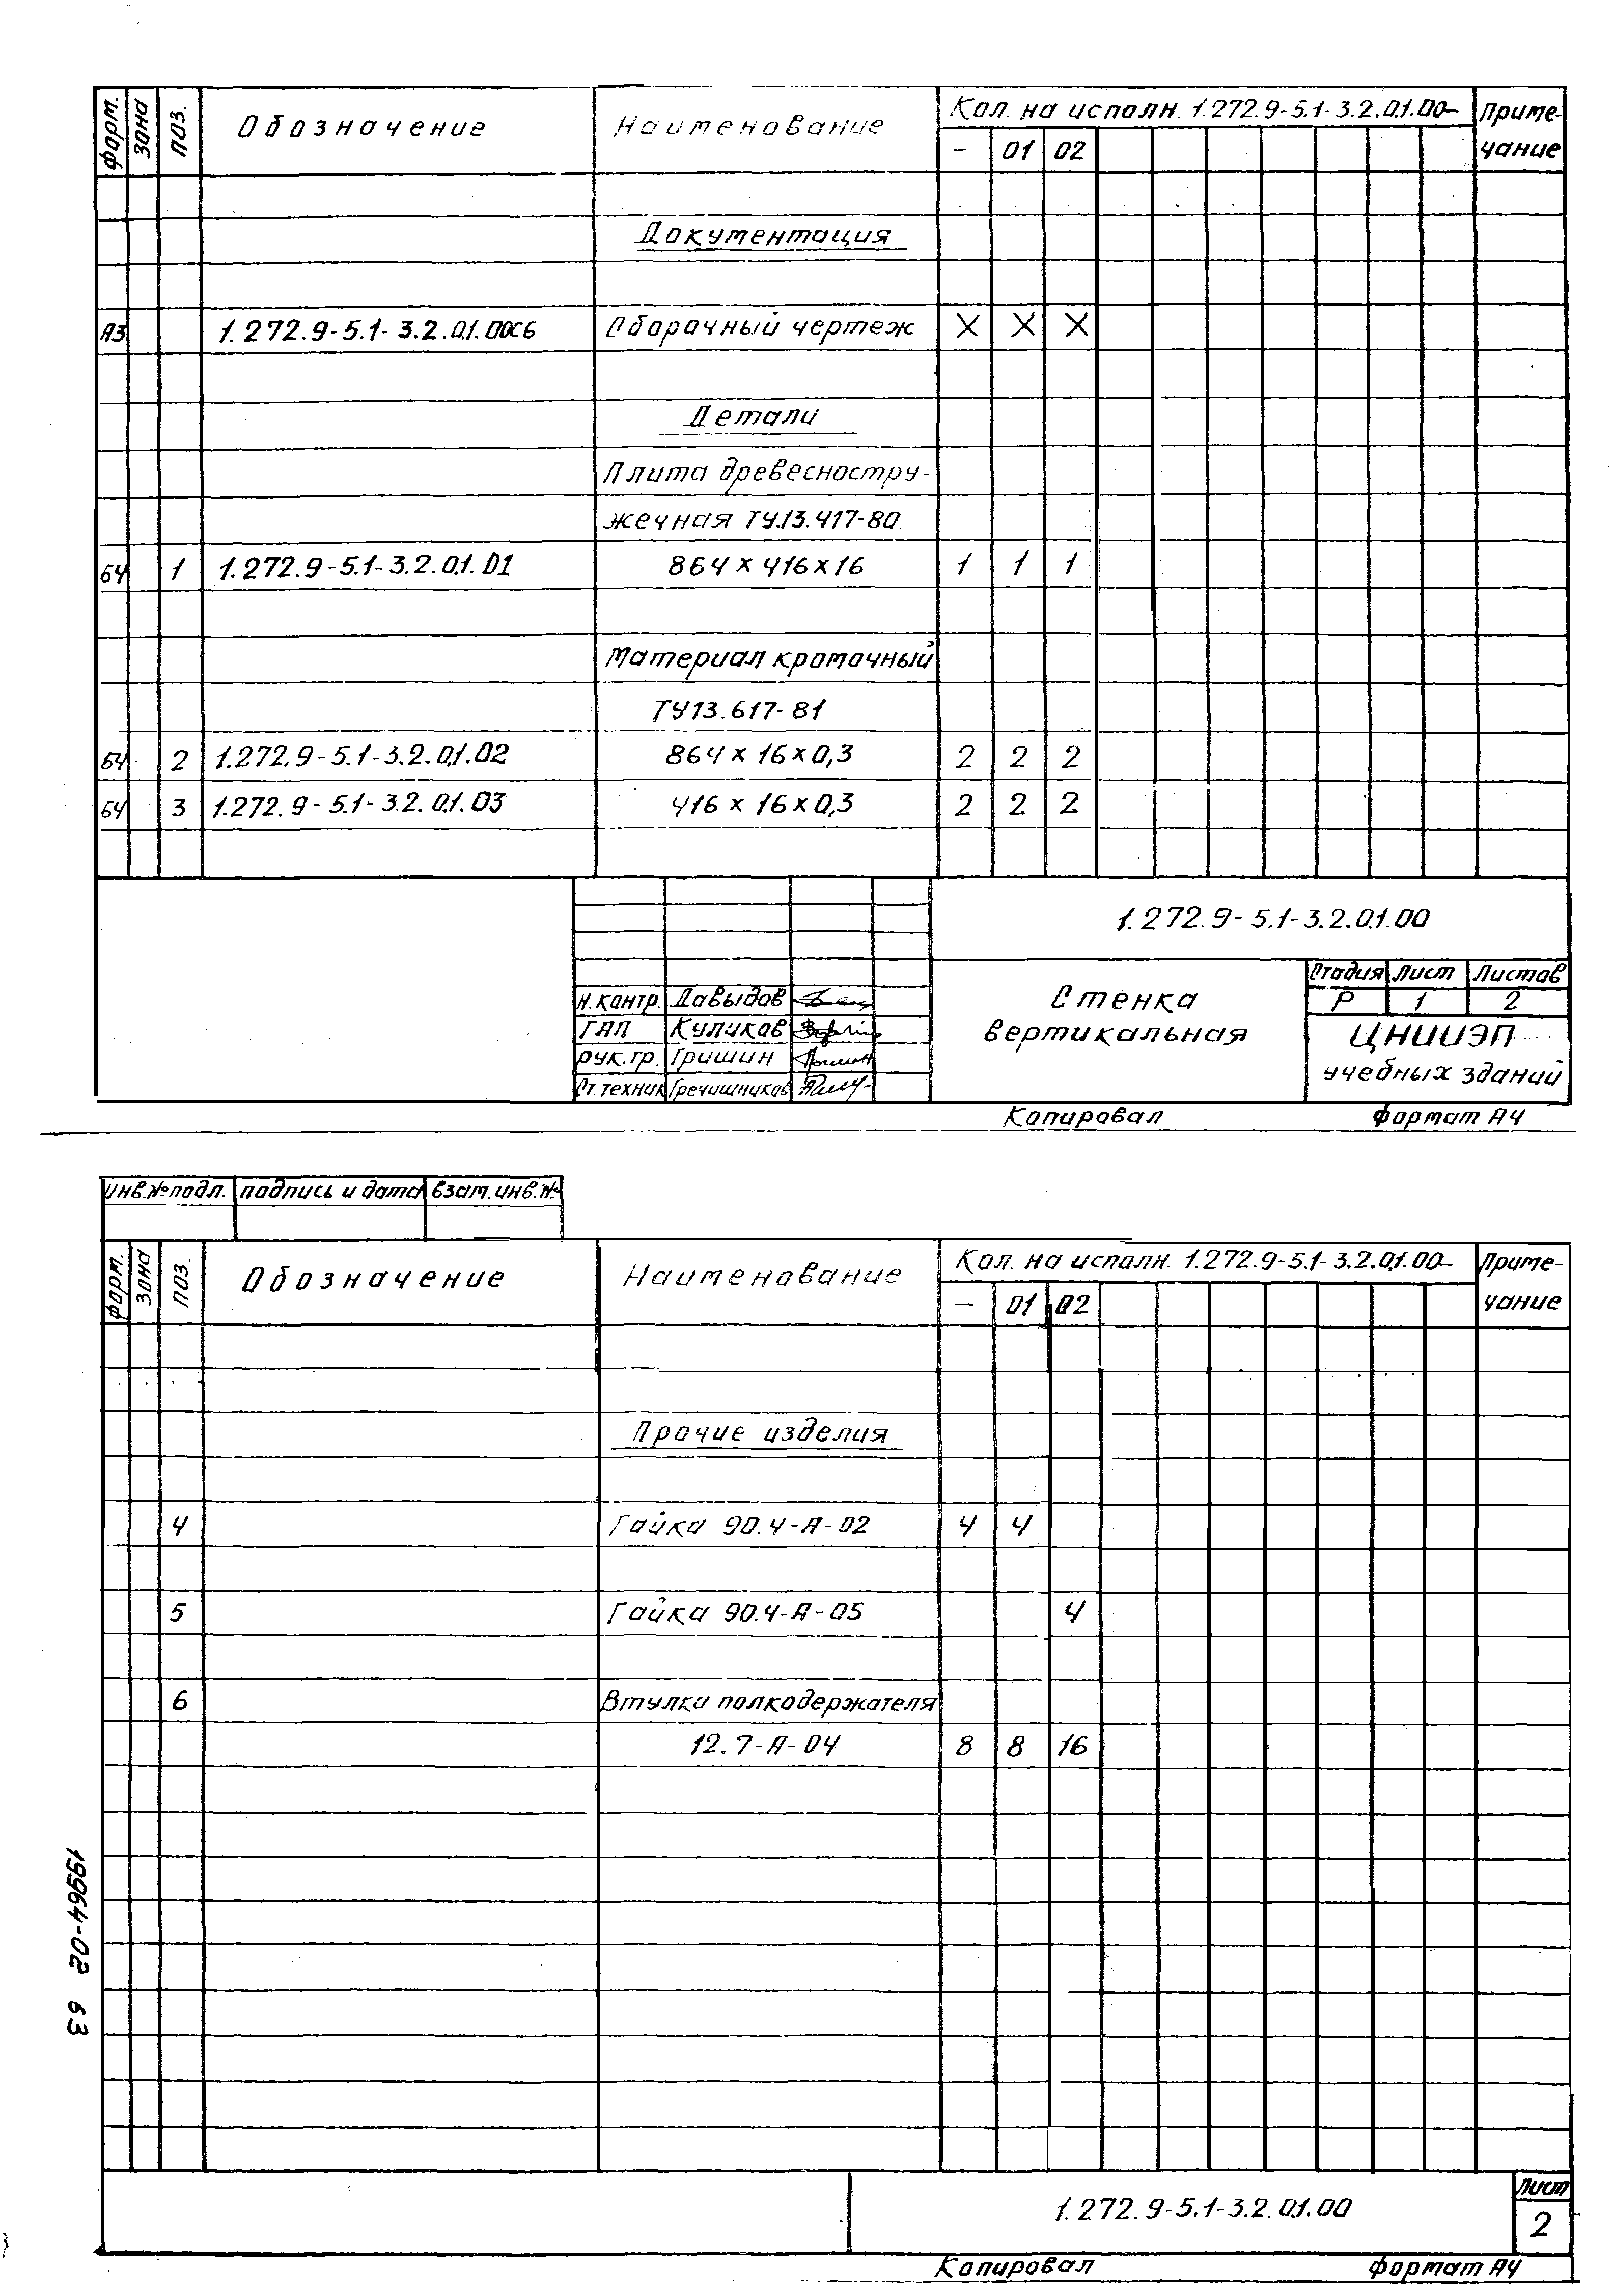 форм. зона поз. Обозначение Наименование Кол. на исполн. 1.272.9-5.1-3.2.01.00- Приме-
- 01 02 чание
Документация
А3 1.272.9-5.1-3.2.01.00СБ Сборочный чертеж X X X
Детали
Плита древесностру-
жечная ТУ.13.417-80
БЧ 1 1.272.9-5.1-3.2.01.01 864 х 416 х 16 1 1 1
Материал кромочный
ТУ13.617-81
БЧ 2 1.272.9-5.1-3.2.01.02 864 х 16 х 0,3 2 2 2
БЧ 3 1.272.9-5.1-3.2.01.03 416 х 16 х 0,3 2 2 2
1.272.9-5.1-3.2.01.00
Стенка
вертикальная
Стадия Лист Листов
Р 1 2
ЦНИИЭП
учебных зданий
Н.контр. Давыдов
ГАП Куликов
Рук.гр. Гришин
Ст.техник Гречишников
Копировал Формат А4
инв.№подл. подпись и дата взам.инв.№
форм. зона поз. Обозначение Наименование Кол. на исполн. 1.272.9-5.1-3.2.01.00- Приме-
- 01 02 чание
Прочие изделия
4 Гайка 90.4-А-02 4 4
5 Гайка 90.4-А-05 4
6 Втулка полкодержателя
12.7-А-04 8 8 16
19964-02 63
1.272.9-5.1-3.2.01.00
Лист
2
Копировал Формат А4